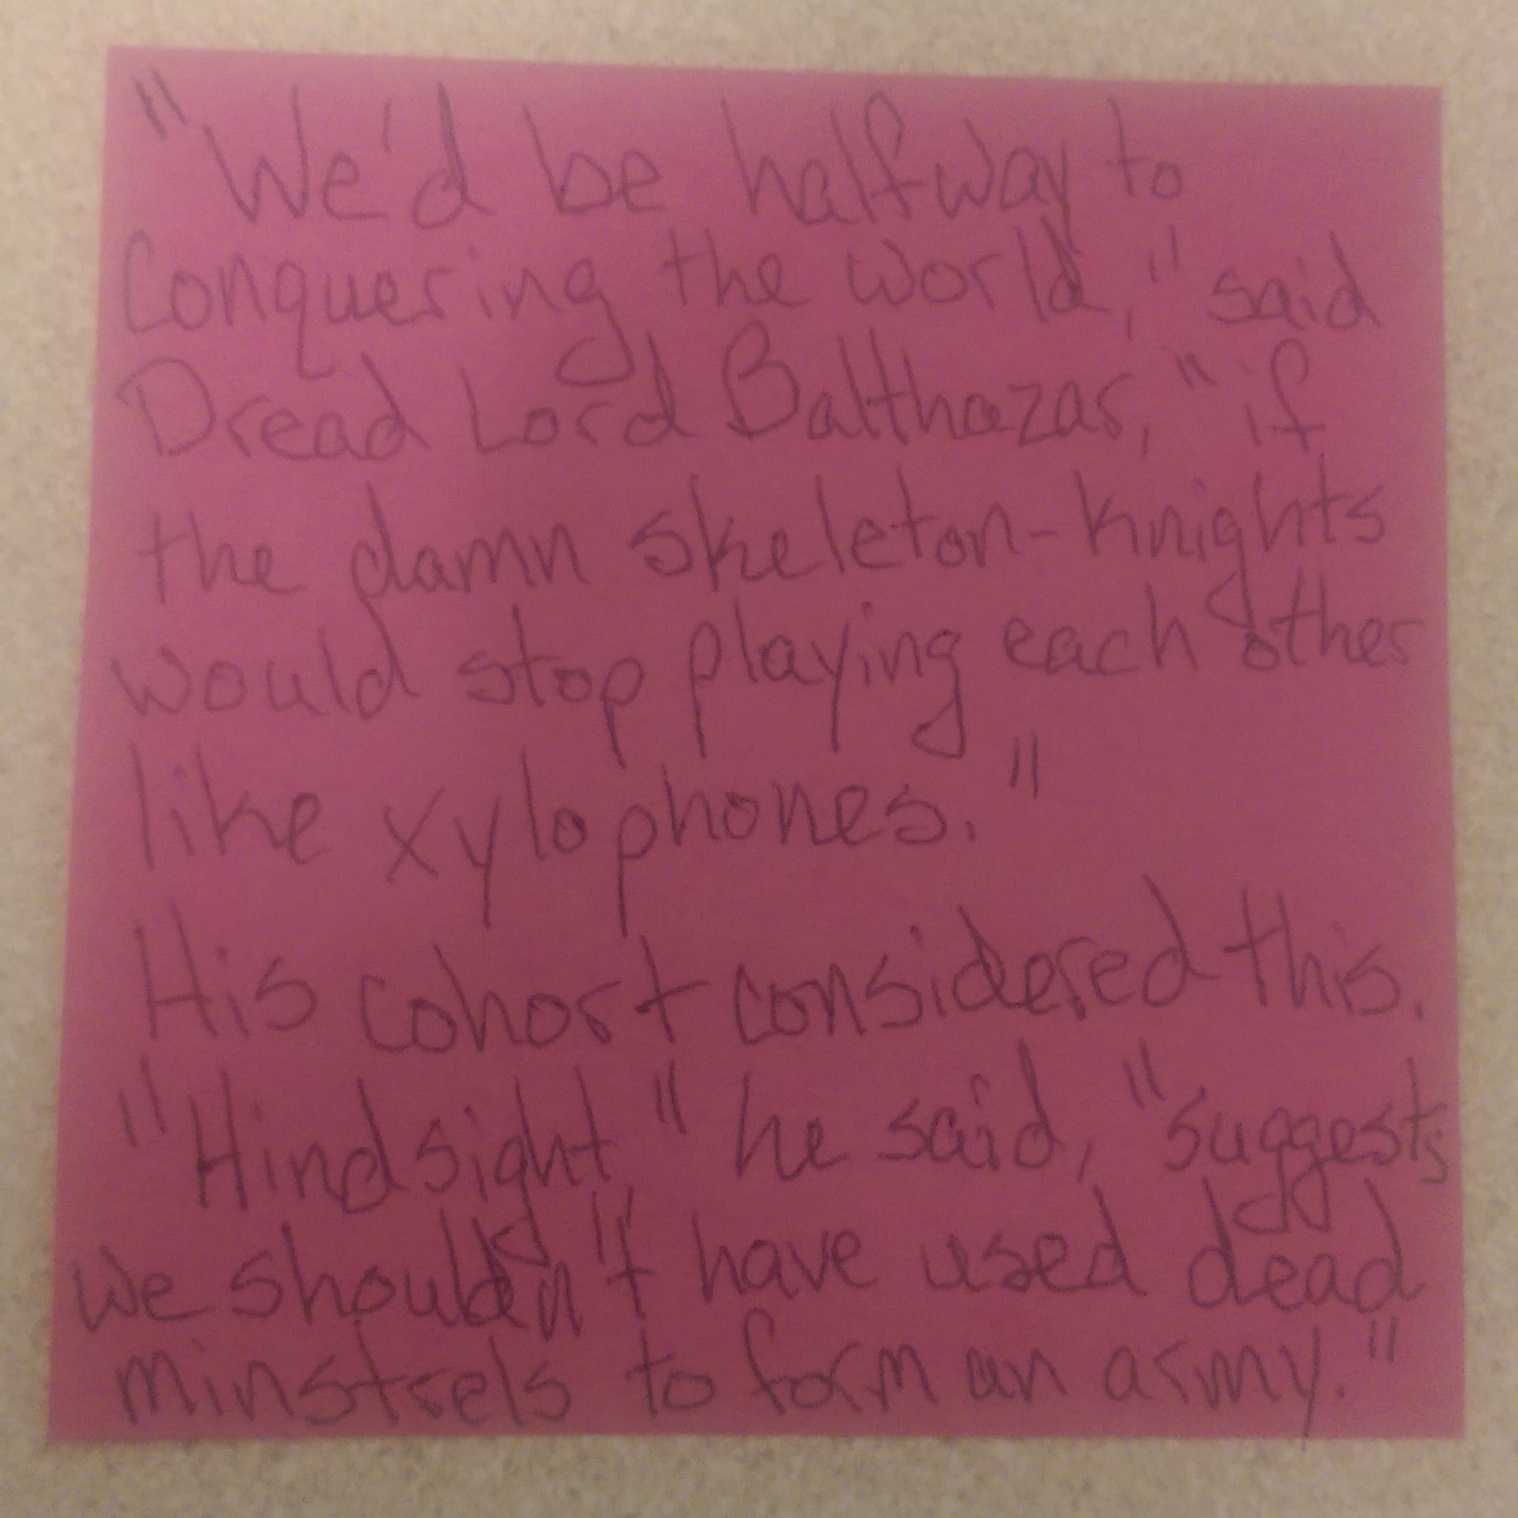 "We'd be halfway to
Conquering the world," said
Dread Lord Balthazar, "if
the damn skeleton-knights
would stop playing each other
like xylophones."
His cohort considered this.
"Hindsight" he said, "suggests
we shouldn't have used dead
minstrels to form an army."